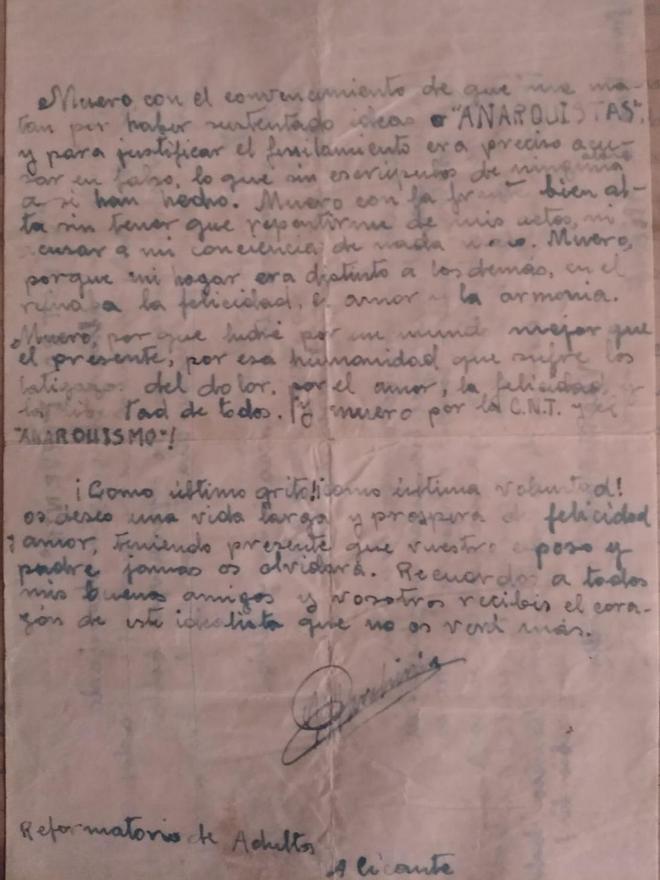 Muero con el convencimiento de que me ma-
tan por haber sustentado ideas "ANARQUISTAS",
y para justificar el fusilamiento era preciso acu-
sar en falso, lo que sin escrúpulos de ninguna
a sí han hecho. Muero con la frente bien al-
ta sin tener que repentirme de mis actos, ni
acusar a mi conciencia de nada malo. Muero,
porque mi hogar era distinto a los demás, en el
reinaba la felicidad, el amor y la armonia.
Muero, por que luché por un mundo mejor que
el presente, por esa humanidad que sufre los
latigazos del dolor. por el amor, la felicidad y
la libertad de todos. ¡Y muero por la C.N.T. y el
"ANARQUISMO"!
¡Como último grito! ¡como última voluntad!
os deseo una vida larga y prospera de felicidad
y amor, teniendo presente que vuestro esposo y
padre jamas os olvidará. Recuerdos a todos
mis buenos amigos y vosotros recibis el cora-
zón de este idealista que no os verá más.
Reformatorio de Adultos
Alicante